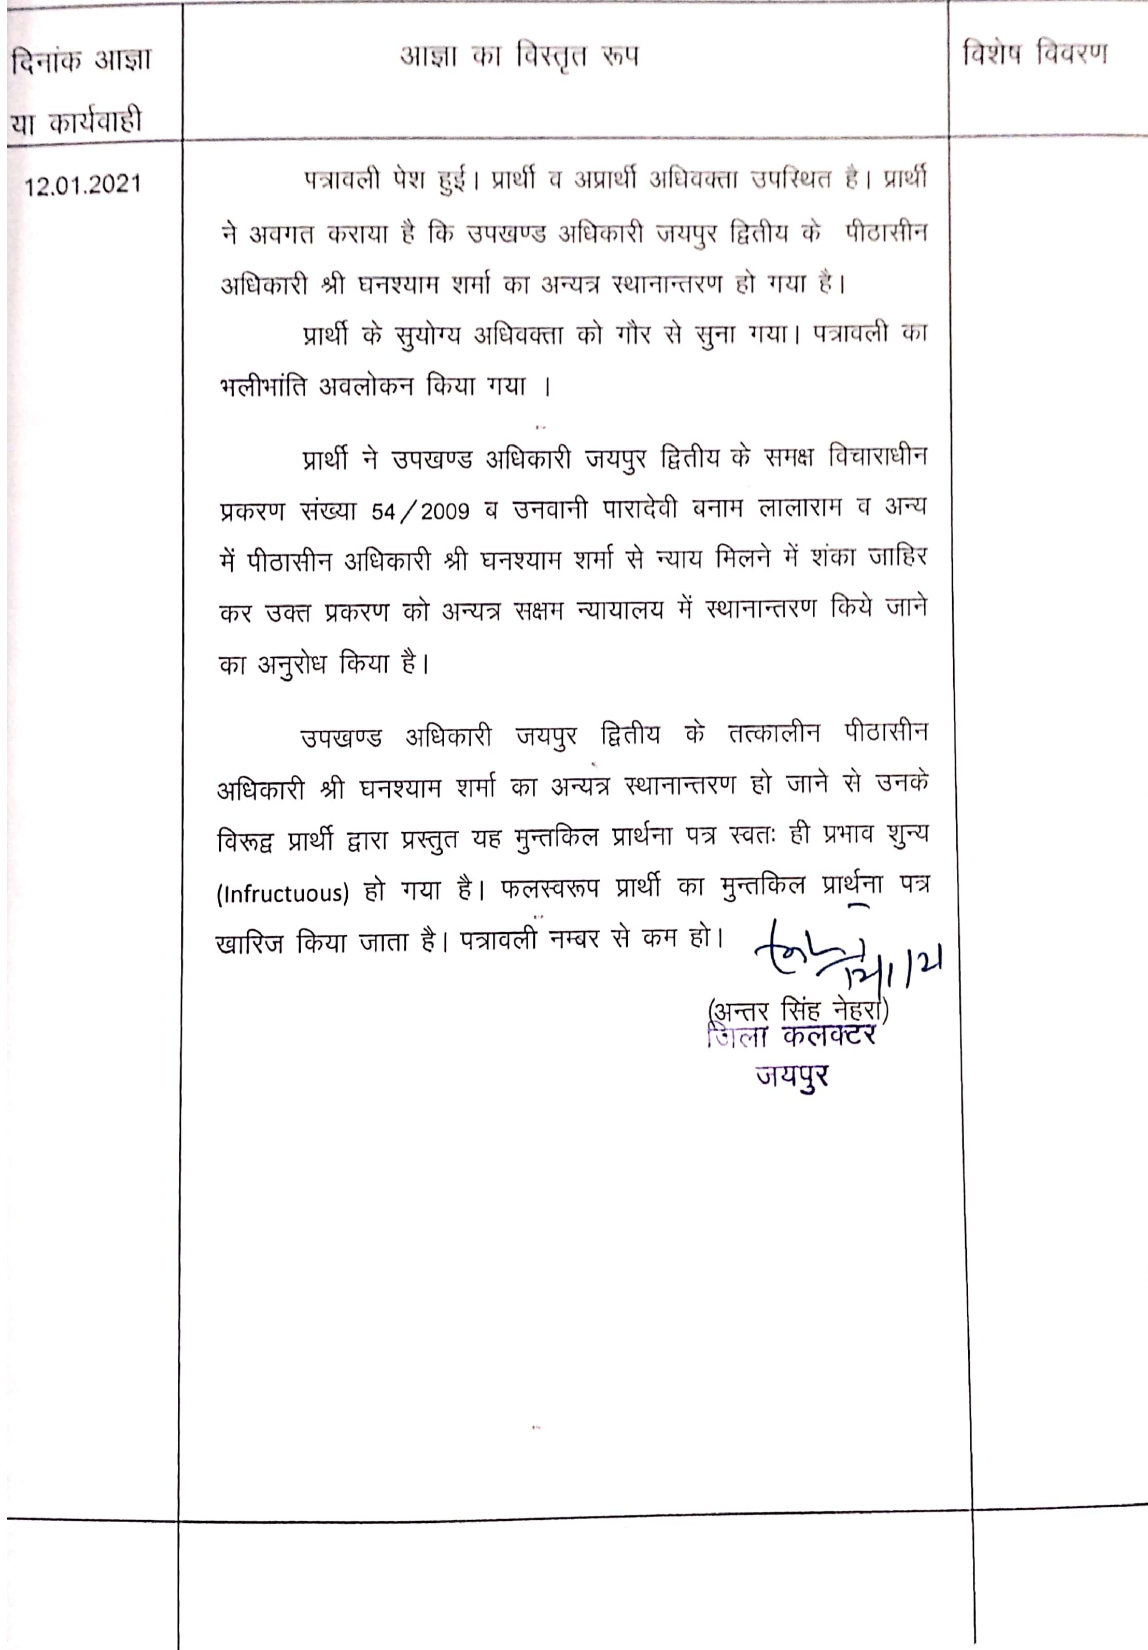 दिनांक आज्ञा
या कार्यवाही
आज्ञा का विस्तृत रूप
विशेष विवरण
12.01.2021
पत्रावली पेश हुई। प्रार्थी व अप्रार्थी अधिवक्ता उपस्थित है। प्रार्थी
ने अवगत कराया है कि उपखण्ड अधिकारी जयपुर द्वितीय के पीठासीन
अधिकारी श्री घनश्याम शर्मा का अन्यत्र स्थानान्तरण हो गया है।
प्रार्थी के सुयोग्य अधिवक्ता को गौर से सुना गया। पत्रावली का
भलीभांति अवलोकन किया गया ।
प्रार्थी ने उपखण्ड अधिकारी जयपुर द्वितीय के समक्ष विचाराधीन
प्रकरण संख्या 54/2009 ब उनवानी पारादेवी बनाम लालाराम व अन्य
में पीठासीन अधिकारी श्री घनश्याम शर्मा से न्याय मिलने में शंका जाहिर
कर उक्त प्रकरण को अन्यत्र सक्षम न्यायालय में स्थानान्तरण किये जाने
का अनुरोध किया है।
उपखण्ड अधिकारी जयपुर द्वितीय के तत्कालीन पीठासीन
अधिकारी श्री घनश्याम शर्मा का अन्यत्र स्थानान्तरण हो जाने से उनके
विरूद्व प्रार्थी द्वारा प्रस्तुत यह मुन्तकिल प्रार्थना पत्र स्वतः ही प्रभाव शुन्य
(Infructuous) हो गया है। फलस्वरूप प्रार्थी का मुन्तकिल प्रार्थना पत्र
खारिज किया जाता है। पत्रावली नम्बर से कम हो।
12/1/21
(अन्तर सिंह नेहरा)
जिला कलक्टर
जयपुर